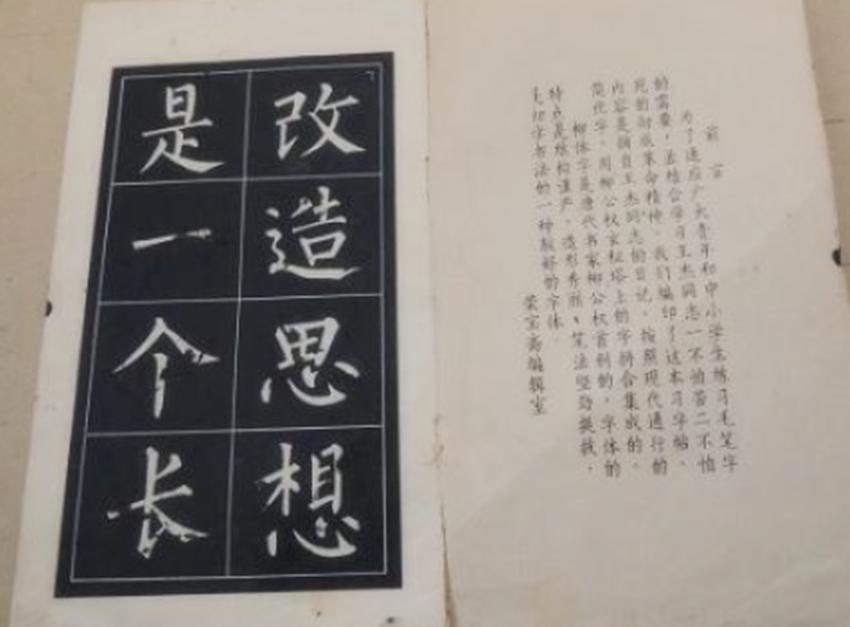 前言
为了适应广大青年和中小学生练习毛笔字
的需要，并结合学习王杰同志一不怕苦二不怕
死的彻底革命精神，我们编印了这本习字帖。
内容是摘自王杰同志的日记，按照现代通行的
简化字，用柳公权玄秘塔上的字拼合集成的。
柳体字是唐代书家柳公权首创的，字体的
特点是结构谨严，造形秀丽，笔法坚劲挺拔，
是初学书法的一种较好的字体。
荣宝斋编辑室
改造思想
是一个长